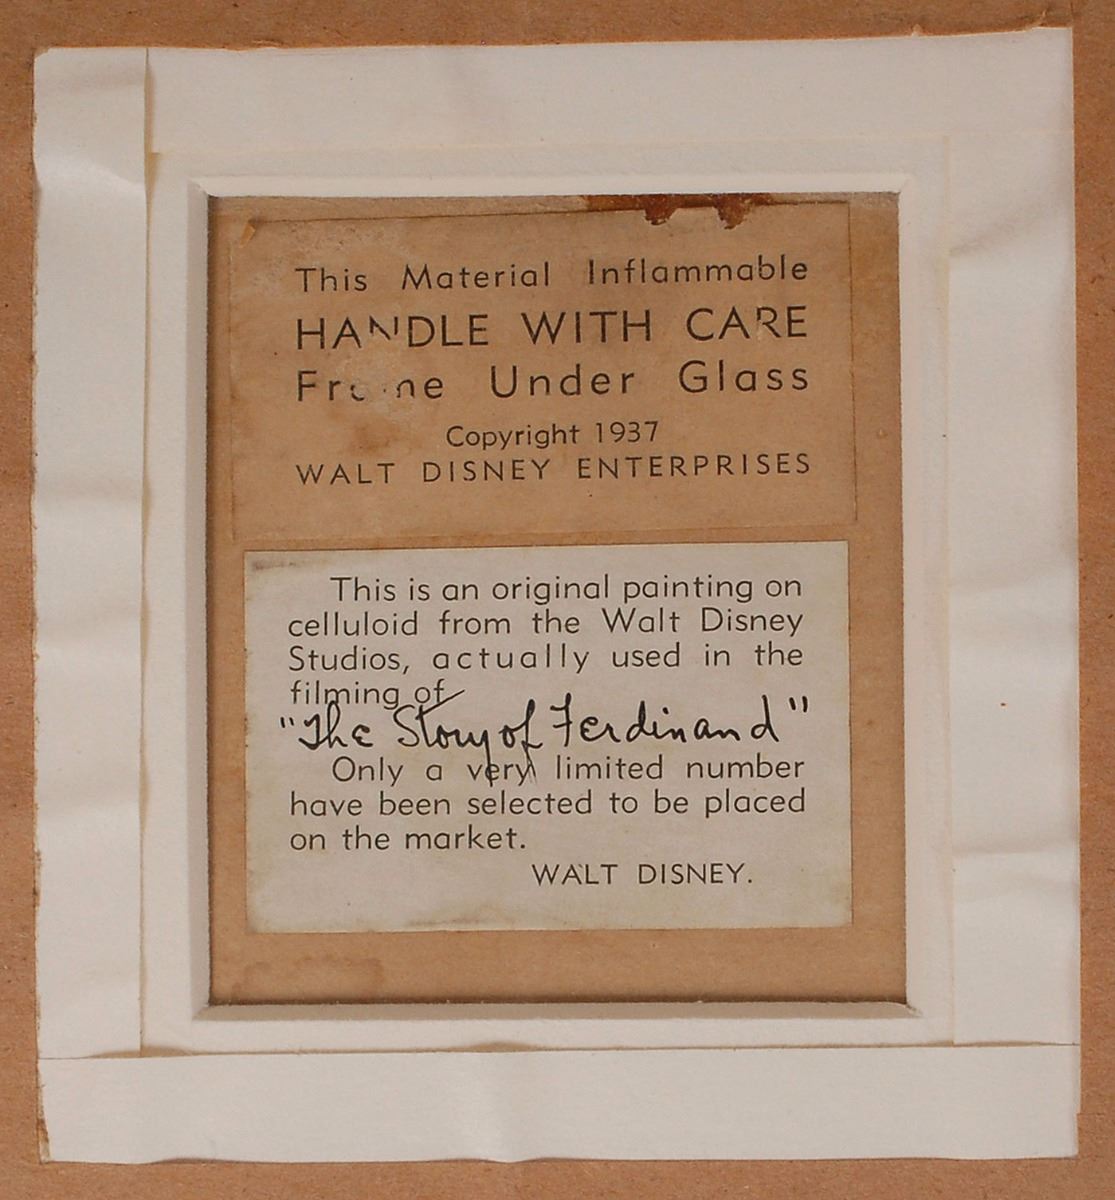 This Material Inflammable
HANDLE WITH CARE
Frame Under Glass
Copyright 1937
WALT DISNEY ENTERPRISES
This is an original painting on
celluloid from the Walt Disney
Studios, actually used in the
filming of
"The Story of Ferdinand"
Only a very limited number
have been selected to be placed
on the market.
WALT DISNEY.